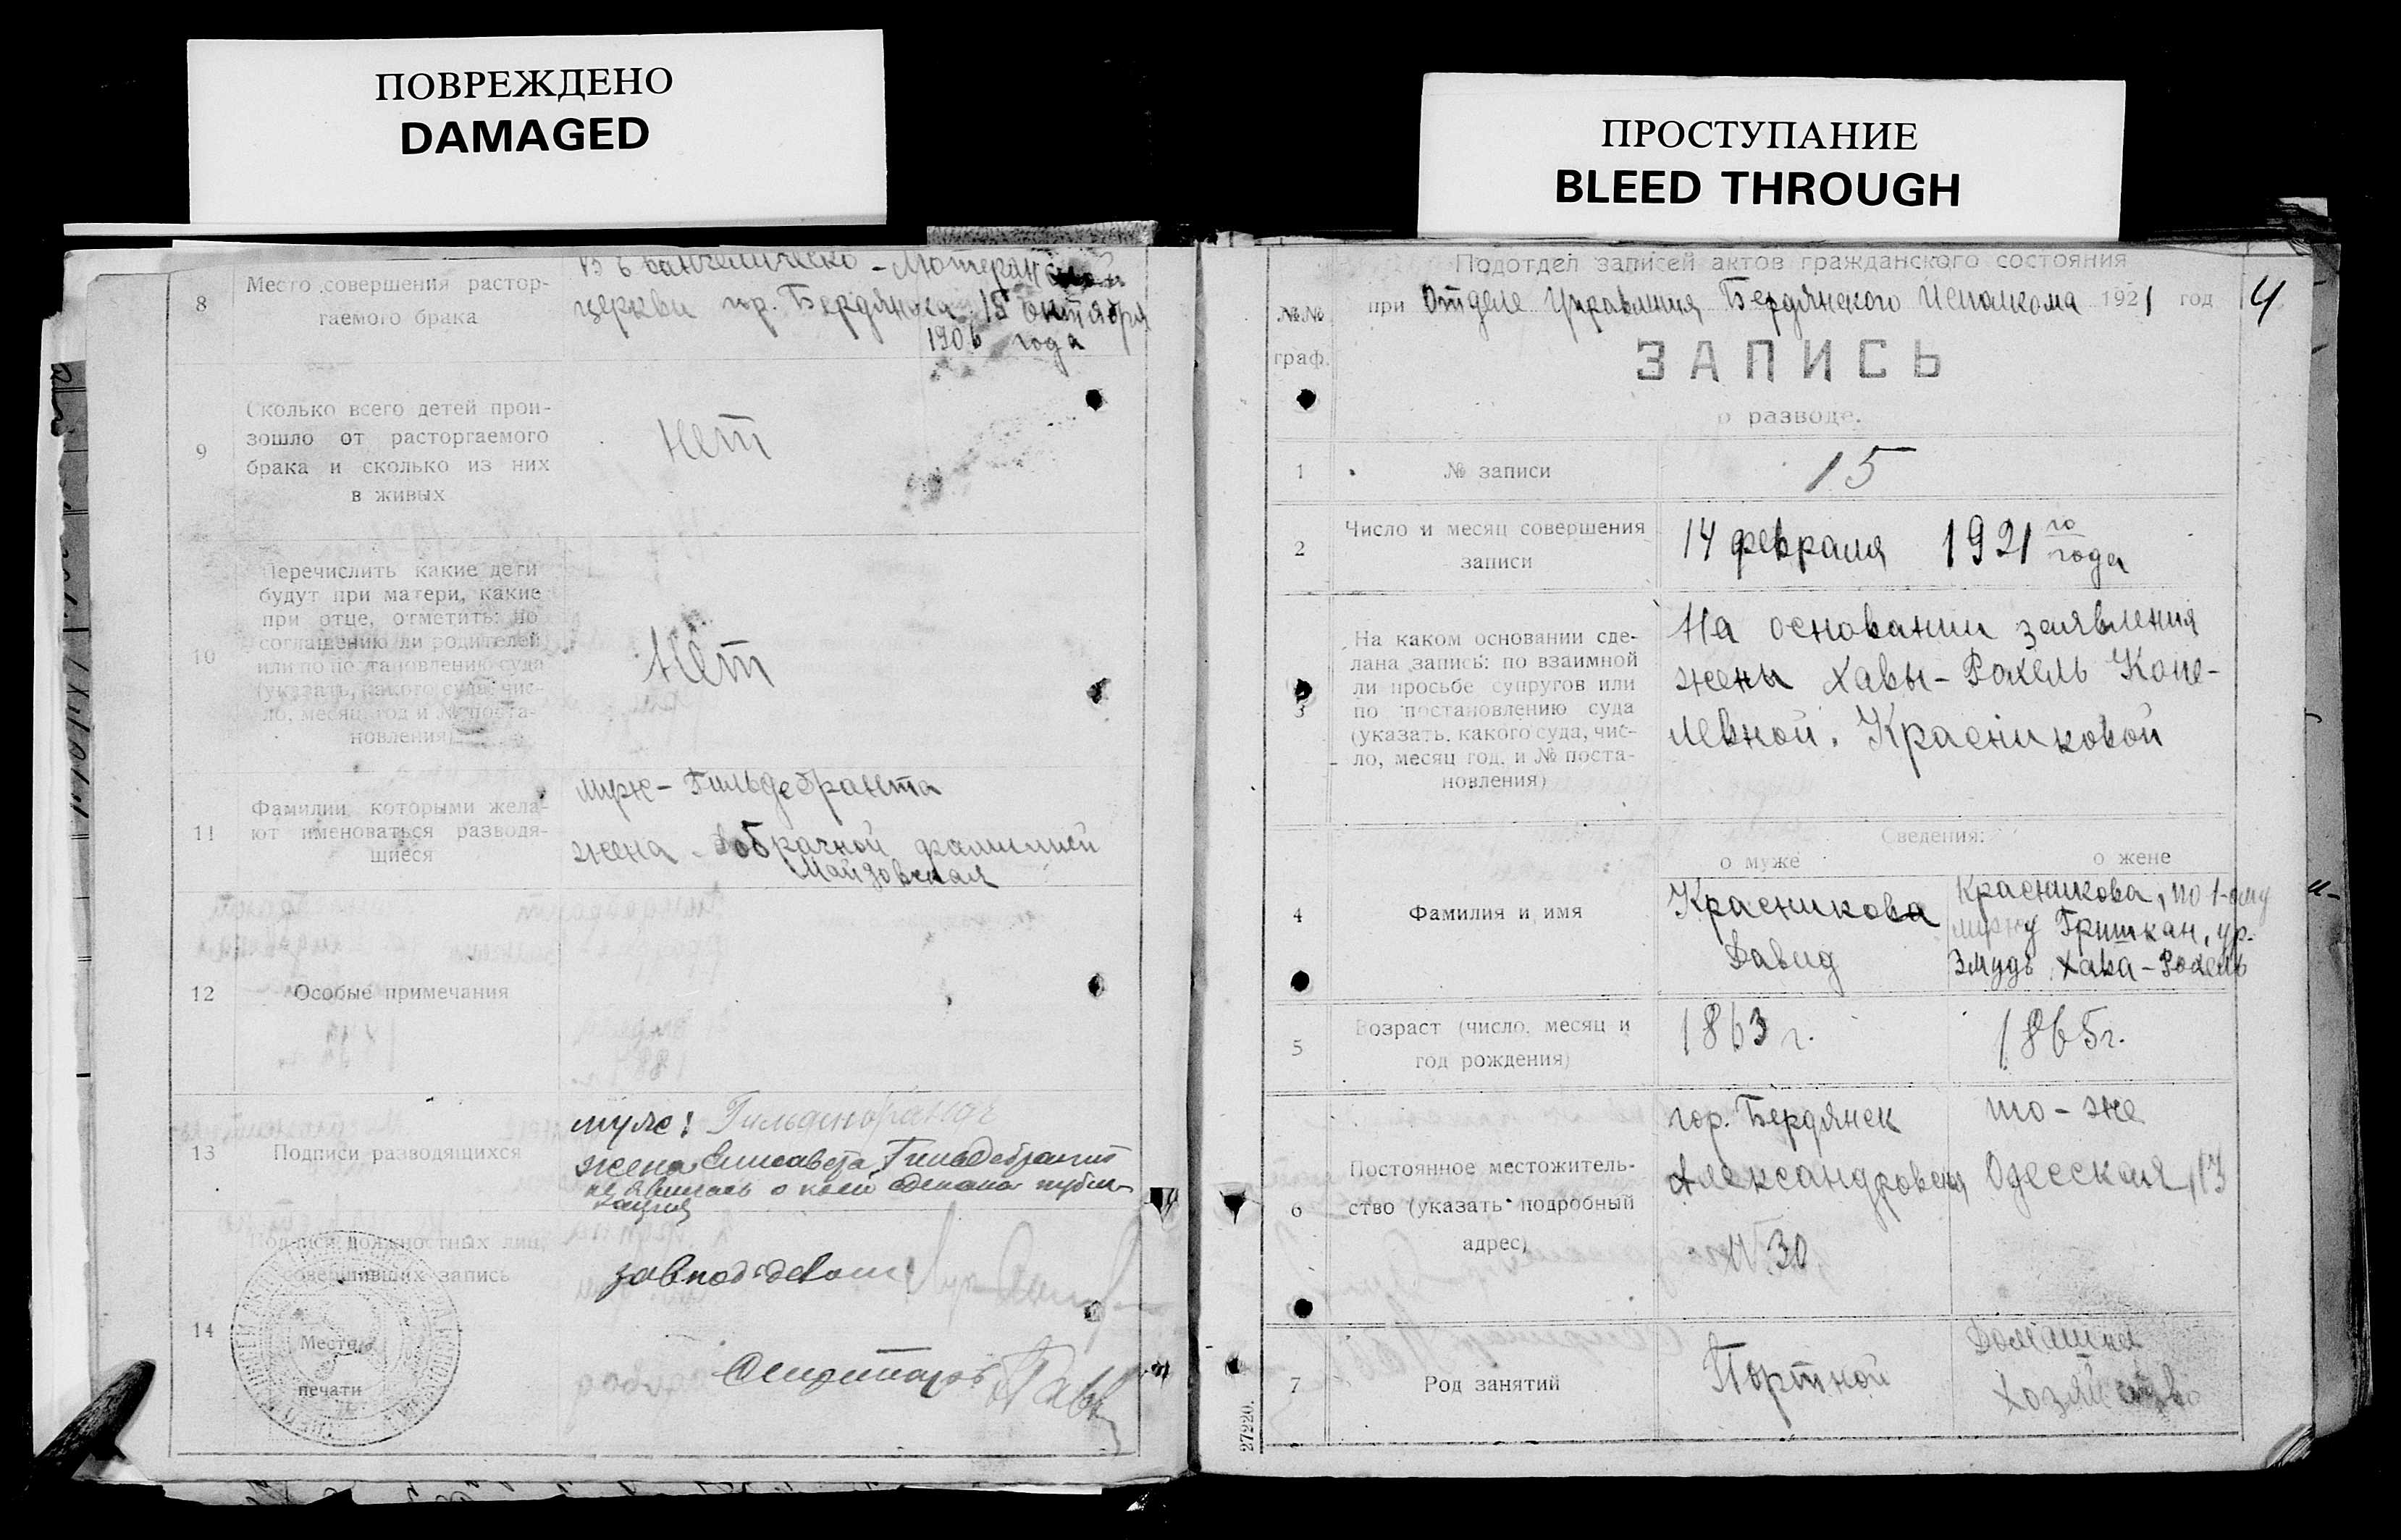 ПОВРЕЖДЕНО
DAMAGED
ПРОСТУПАНИЕ
BLEED THROUGH
8
Место совершения растор-
гаемого брака
В Евангелическо-Лютеранской
церкви гор. Бердянска 15 октября
1906 года
9
Сколько всего детей прои-
зошло от расторгаемого
брака и сколько из них
в живых
Нет
10
Перечислить какие дети
будут при матери, какие
при отце, отметить: по
соглашению ли родителей
или по постановлению суда
(указать, какого суда, чис-
ло, месяц, год и № поста-
новления)
Нет
11
Фамилии которыми жела-
ют именоваться разводя-
щиеся
муж - Гильдебранта
жена - добрачной фамилией
Майдовская
12
Особые примечания
13
Подписи разводящихся
муж:
жена Елисавета Гильдебрант
не явилась о коей сделана публи-
кация
14
Подписи должностных лиц,
совершивших запись
Место
печати
завподотделом
Секретарь
Подотдел записей актов гражданского состояния
№№
граф.
при Отделе Управления Бердянского Исполкома 1921 год
4
ЗАПИСЬ
о разводе.
1
№ записи
15
2
Число и месяц совершения
записи
14 февраля 1921 го
года
3
На каком основании сде-
лана запись: по взаимной
ли просьбе супругов или
по постановлению суда
(указать, какого суда, чис-
ло, месяц год, и № поста-
новления)
На основании заявления
жены Хавы-Рохель Копе-
левной. Красниковой
Сведения:
о муже
о жене
4
Фамилия и имя
Красникова
Давид
Красникова, по 1-ому
мужу Гришкан, ур.
Змудь Хава-Рохель
5
Возраст (число, месяц и
год рождения)
1863 г.
1865 г.
6
Постоянное местожитель-
ство (указать подробный
адрес)
гор. Бердянск
Александровская
№ 30
то-же
Одесская, 13
7
Род занятий
Портной
Домашнее
хозяйство
27220.